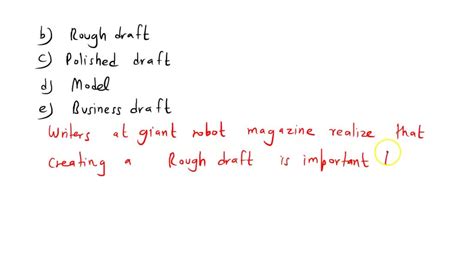 b) Rough draft
c) Polished draft
d) Model
e) Business draft
Writers at giant robot magazine realize that
creating a Rough draft is important